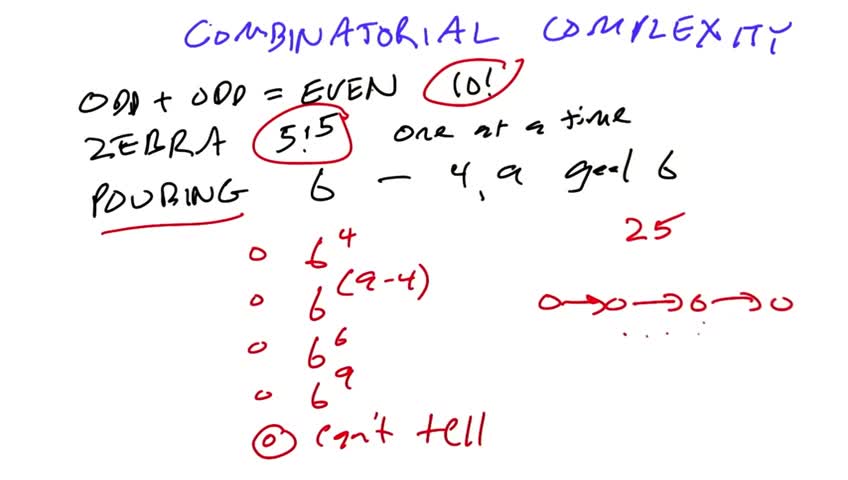 COMBINATORIAL COMPLEXITY
ODD + ODD = EVEN 10!
ZEBRA 5!⁵ one at a time
POURING 6 — 4, 9 goal 6
25
o 6⁴
o 6⁽⁹⁻⁴⁾
o 6⁶
o 6⁹
o can't tell